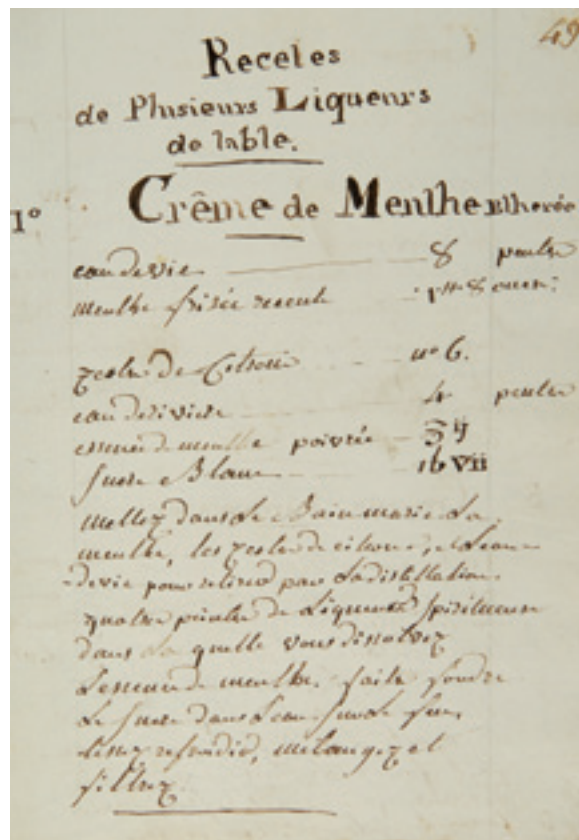 49
Receles
de Plusieurs Liqueurs
de table.
1° Crême de Menthe Etherée
eau de vie 8 peintes
menthe frisée recente
zestes de Citrons n° 6.
eau de riviere 4 peintes
essence de menthe poivrée ʒ ij
sucre Blanc lb vii
mettez dans le Bain marie La
menthe, les zestes de citrons, et Leau
devie pour retirer par La distillation
quatre peintes de Liqueur spiritueuse
dans La quelle vous dissolvez
Lessence de menthe. faite fondre
Le sucre dans Leau sur Le feu,
laissez refroidir, mélangez et
filtrez